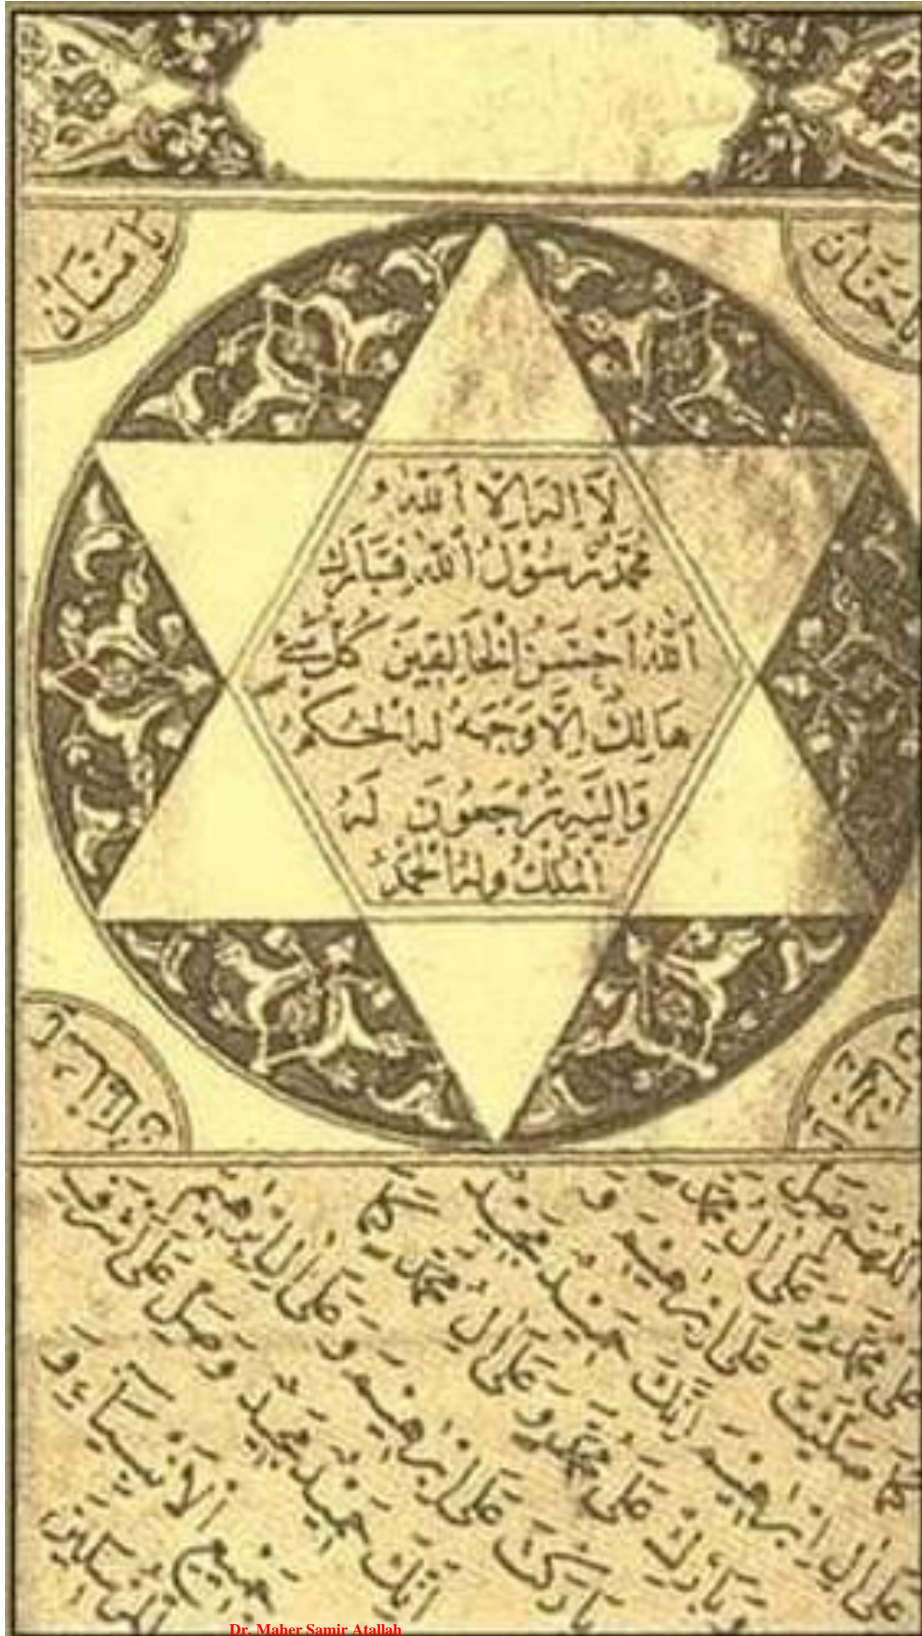 يَا حَنَّان
يَا مَنَّان
لَا اِلٰهَ اِلَّا اَللّٰهُ
مُحَمَّدٌ رَسُوْلُ اَللّٰهِ فَتَبَارَكَ
اَللّٰهُ اَحْسَنُ الْخَالِقِينَ كُلُّ شَيْءٍ
هَالِكٌ اِلَّا وَجْهَهُ لَهُ الْحُكْمُ
وَاِلَيْهِ تُرْجَعُونَ لَهُ
الْمُلْكُ وَلَهُ الْحَمْدُ
اَللّٰهُمَّ صَلِّ
عَلَى مُحَمَّدٍ وَعَلَى اٰلِ مُحَمَّدٍ
كَمَا صَلَّيْتَ عَلَى اِبْرٰهِيمَ وَ
عَلَى اٰلِ اِبْرٰهِيمَ اِنَّكَ حَمِيدٌ مَجِيدٌ
وَبَارِكْ عَلَى مُحَمَّدٍ وَعَلَى اٰلِ مُحَمَّدٍ كَمَا
بَارَكْتَ عَلَى اِبْرٰهِيمَ وَعَلَى اٰلِ اِبْرٰهِيمَ
اِنَّكَ حَمِيدٌ مَجِيدٌ وَصَلِّ عَلَى اَشْرَفِ
جَمِيعِ الْاَنْبِيَاءِ وَ
الْمُرْسَلِينَ
Dr. Maher Samir Atallah